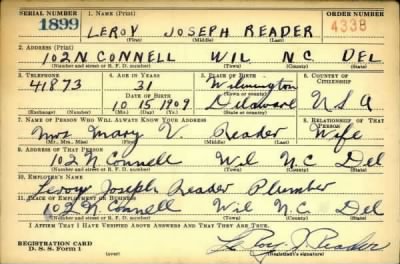 SERIAL NUMBER 1. NAME (Print) ORDER NUMBER
1899 LEROY JOSEPH READER 4338
(First) (Middle) (Last)
2. ADDRESS (Print)
102 N CONNELL WIL N C DEL
(Number and street or R. F. D. number) (Town) (County) (State)
3. TELEPHONE 4. AGE IN YEARS 5. PLACE OF BIRTH 6. COUNTRY OF CITIZENSHIP
41873 31 Wilmington
DATE OF BIRTH (Town or county)
10 15 1909 Delaware U S A
(Exchange) (Number) (Mo.) (Day) (Yr.) (State or country)
7. NAME OF PERSON WHO WILL ALWAYS KNOW YOUR ADDRESS 8. RELATIONSHIP OF THAT PERSON
Mrs Mary V Reader Wife
(Mr., Mrs., Miss) (First) (Middle) (Last)
9. ADDRESS OF THAT PERSON
102 N. Connell Wil N.C Del
(Number and street or R. F. D. number) (Town) (County) (State)
10. EMPLOYER'S NAME
Leroy Joseph Reader Plumber
11. PLACE OF EMPLOYMENT OR BUSINESS
102 N. Connell Wil N.C. Del
(Number and street or R. F. D. number) (Town) (County) (State)
I AFFIRM THAT I HAVE VERIFIED ABOVE ANSWERS AND THAT THEY ARE TRUE.
REGISTRATION CARD
D. S. S. Form 1 (over) Le Roy J Reader
(Registrant's signature)